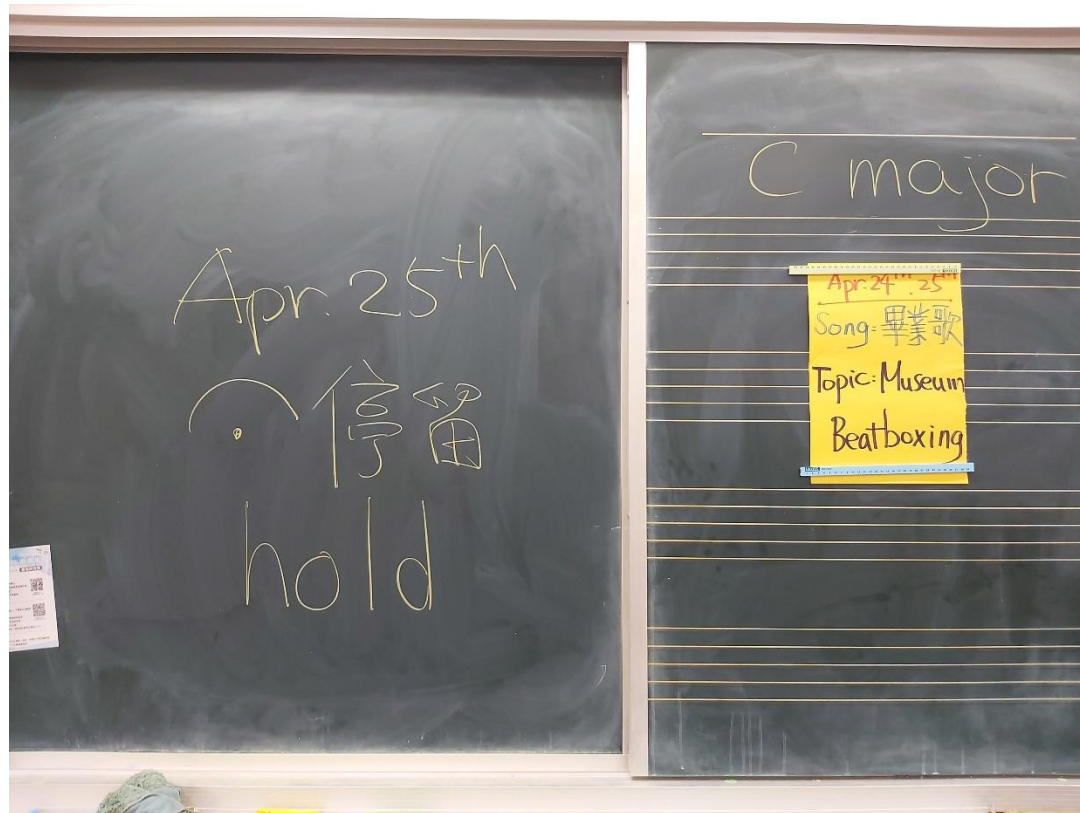 Apr. 25th
停留
hold
C major
Apr. 24th. 25th
Song: 畢業歌
Topic: Museum
Beatboxing